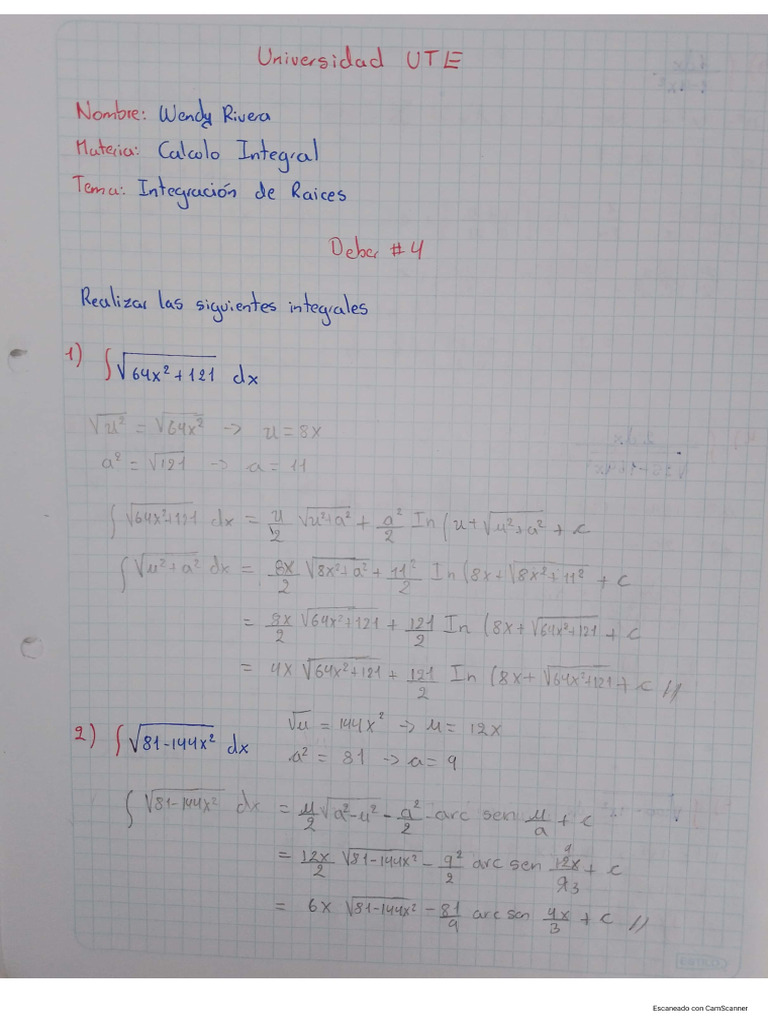 Universidad UTE
Nombre: Wendy Rivera
Materia: Calculo Integral
Tema: Integración de Raices
Deber #4
Realizar las siguientes integrales
1) ∫√(64x²+121) dx
√u² = √64x² -> u = 8x
a² = √121 -> a = 11
∫√(64x²+121) dx = u/2 √(u²+a²) + a²/2 In (u+√(u²+a²) + c
∫√(u²+a²) dx = 8x/2 √(8x²+a²) + 11²/2 In (8x+√(8x²+11²) + c
= 8x/2 √(64x²+121) + 121/2 In (8x+√(64x²+121) + c
= 4x √(64x²+121) + 121/2 In (8x+√(64x²+121) + c //
2) ∫√(81-144x²) dx
√u = 144x² -> u = 12x
a² = 81 -> a = 9
∫√(81-144x²) dx = u/2 √(a²-u²) - a²/2 - arc sen u/a + c
= 12x/2 √(81-144x²) - 9²/2 arc sen 12x/9 + c
= 6x √(81-144x²) - 81/9 arc sen 4x/3 + c //
Escaneado con CamScanner